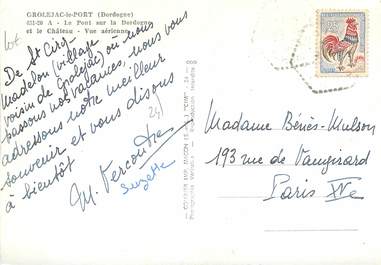 GROLEJAC-le-PORT (Dordogne)
431-20 A - Le Pont sur la Dordogne
et le Château - Vue aérienne
lot
De St Cirq
Madelon (village
voisin de Grolejac) où nous
passons nos vacances, nous vous
adressons notre meilleur
souvenir et vous disons
à bientôt
M. Vercoutre
Suzette
24
Madame Bénès-Mulson
193 rue de Vaugirard
Paris XVe